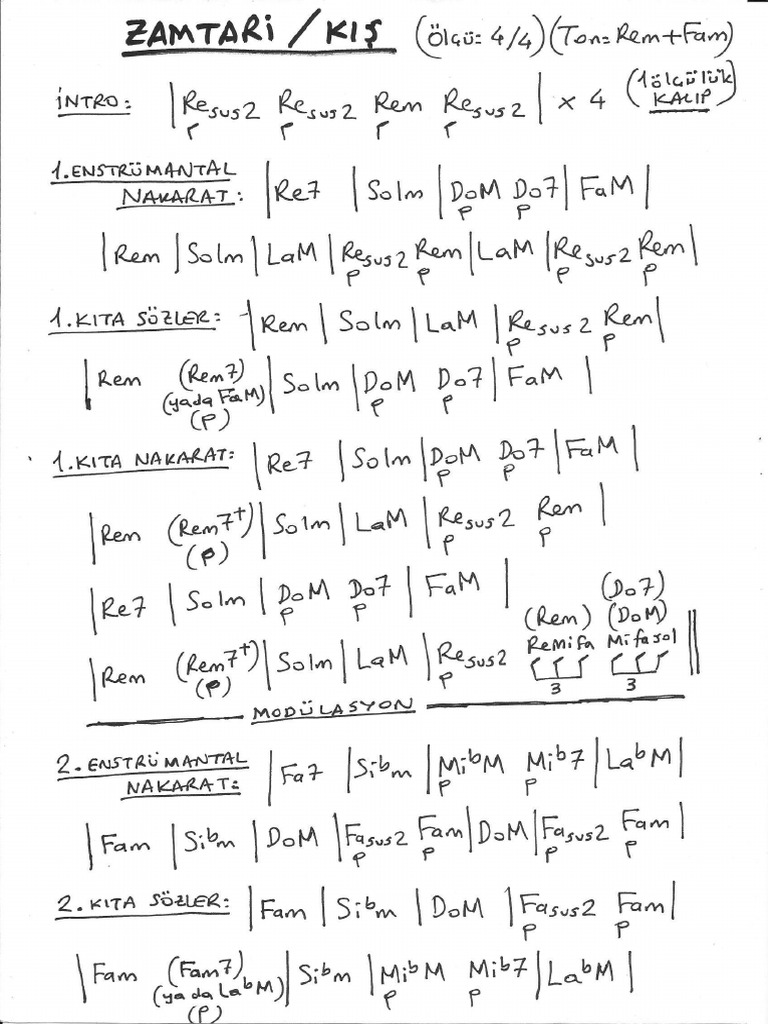 ZAMTARİ / KIŞ (ÖLÇÜ: 4/4) (TON= Rem+Fam)
İNTRO: | Resus2 Resus2 Rem Resus2 | x 4 (1 ölçülük KALIP)
1. ENSTRÜMANTAL NAKARAT: | Re7 | Solm | DoM Do7 | FaM |
| Rem | Solm | LaM | Resus2 Rem | LaM | Resus2 Rem |
1. KITA SÖZLER: | Rem | Solm | LaM | Resus2 Rem |
| Rem (Rem7) (yada FaM) | Solm | DoM Do7 | FaM |
1. KITA NAKARAT: | Re7 | Solm | DoM Do7 | FaM |
| Rem (Rem7+) | Solm | LaM | Resus2 Rem |
| Re7 | Solm | DoM Do7 | FaM |
(Rem) (Do7) (DoM)
| Rem (Rem7+) | Solm | LaM | Resus2 Remifa Mifasol ||
3 3
MODÜLASYON
2. ENSTRÜMANTAL NAKARAT: | Fa7 | Sibm | MibM Mib7 | LabM |
| Fam | Sibm | DoM | Fasus2 Fam | DoM | Fasus2 Fam |
2. KITA SÖZLER: | Fam | Sibm | DoM | Fasus2 Fam |
| Fam (Fam7) (yada LabM) | Sibm | MibM Mib7 | LabM |